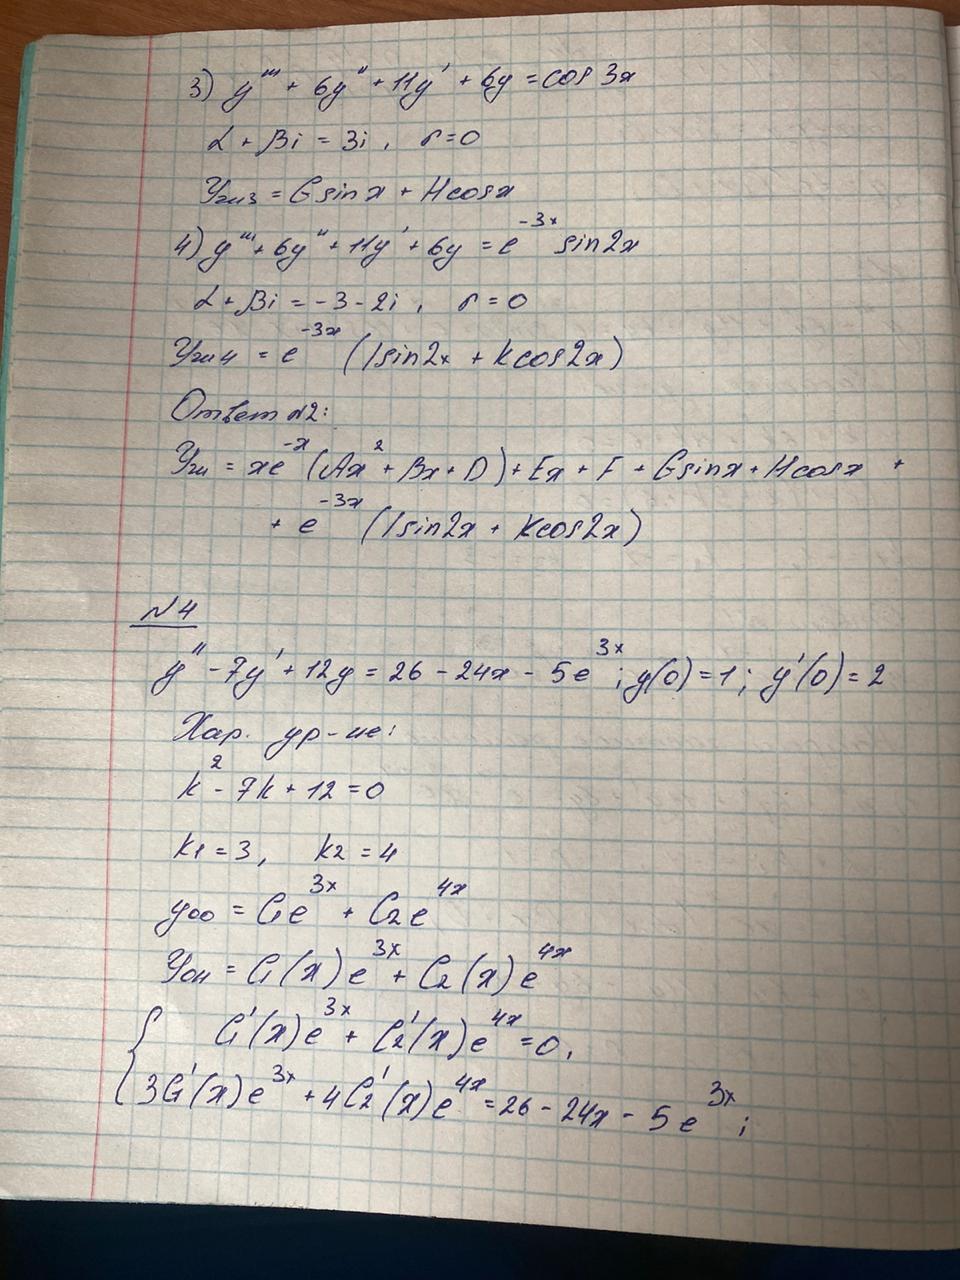 3) y''' + 6y'' + 11y' + 6y = cos 3x
α + βi = 3i , r = 0
Yчн3 = G sin x + H cos x
4) y''' + 6y'' + 11y' + 6y = e^{-3x} sin 2x
α + βi = -3 - 2i , r = 0
Yчн4 = e^{-3x} (I sin 2x + K cos 2x)
Ответ №2:
Yчн = xe^{-x} (Ax² + Bx + D) + Ex + F + G sin x + H cos x +
+ e^{-3x} (I sin 2x + K cos 2x)
№4
y'' - 7y' + 12y = 26 - 24x - 5e^{3x} ; y(0) = 1 ; y'(0) = 2
Хар. ур-ие:
k² - 7k + 12 = 0
k1 = 3 , k2 = 4
yоо = C1e^{3x} + C2e^{4x}
Yон = C1(x)e^{3x} + C2(x)e^{4x}
{ C1'(x)e^{3x} + C2'(x)e^{4x} = 0 ,
3C1'(x)e^{3x} + 4C2'(x)e^{4x} = 26 - 24x - 5e^{3x} ;